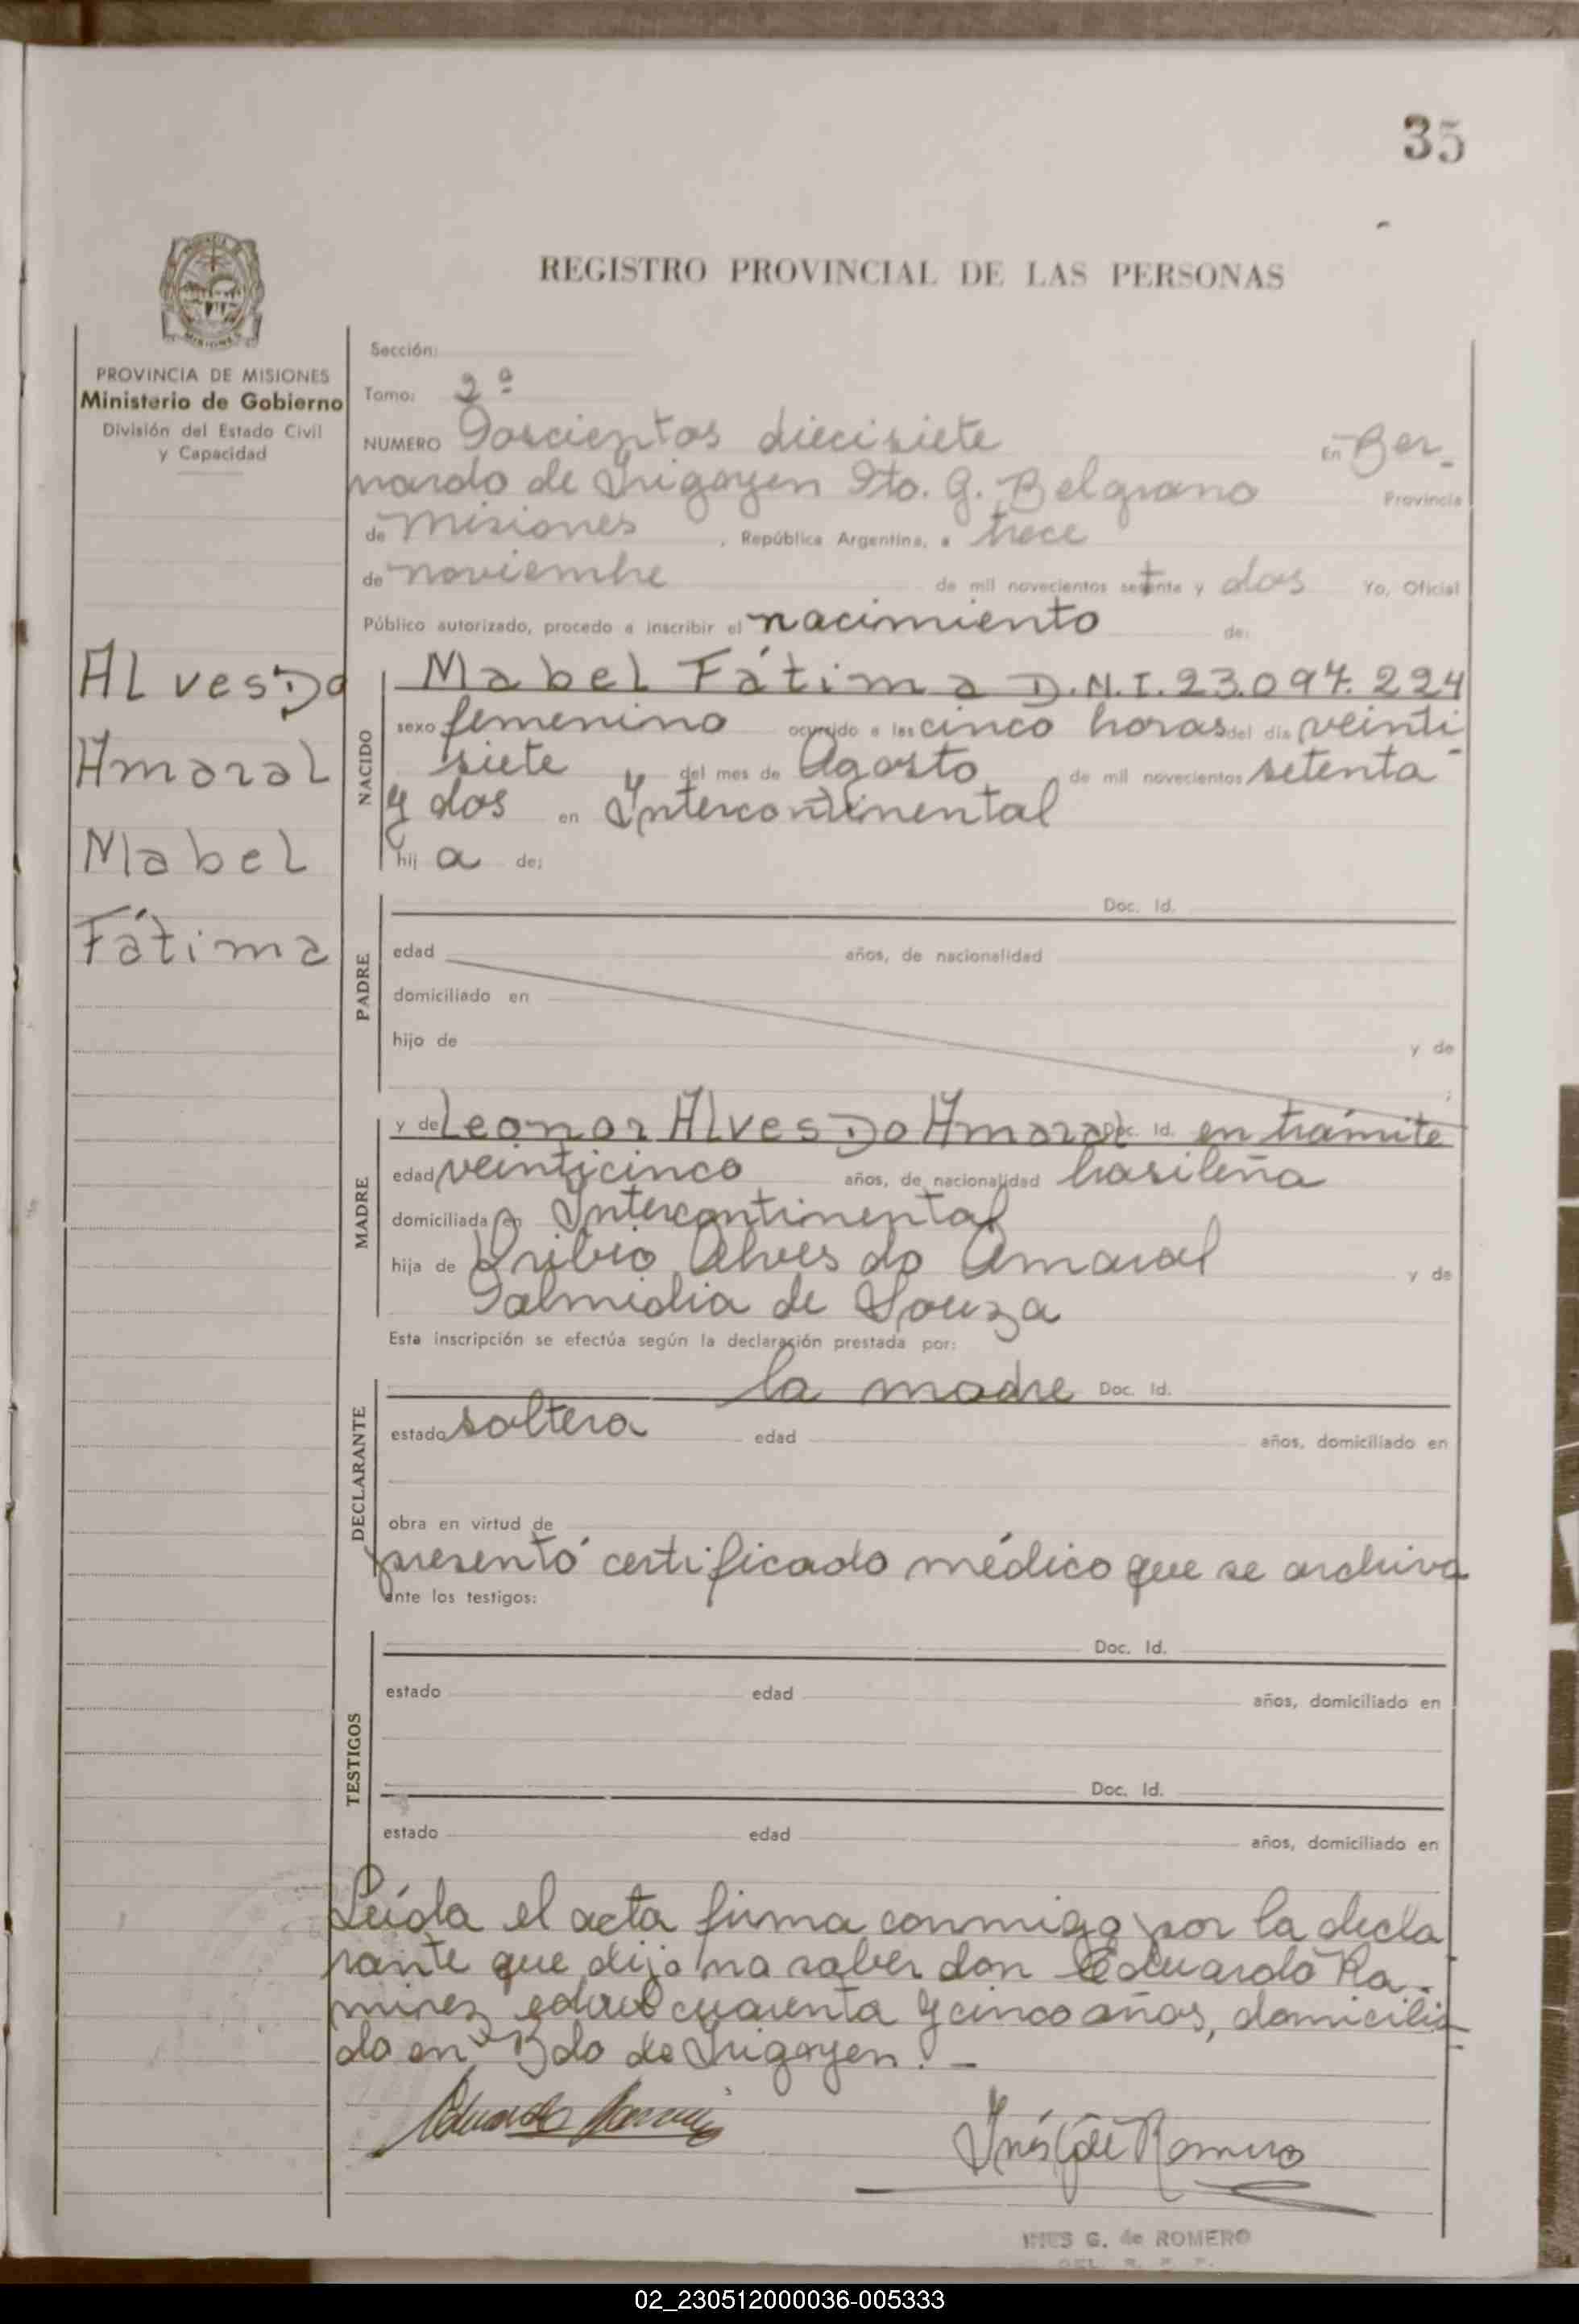 35
REGISTRO PROVINCIAL DE LAS PERSONAS
PROVINCIA DE MISIONES
Ministerio de Gobierno
División del Estado Civil
y Capacidad
Sección:
Tomo: 2º
NUMERO Doscientos diecisiete En Ber-
nardo de Irigoyen Dto. G. Belgrano Provincia
de Misiones , República Argentina, a trece
de noviembre de mil novecientos setenta y dos Yo, Oficial
Público autorizado, procedo a inscribir el nacimiento de:
Alves Do
Amaral
Mabel
Fátima
NACIDO
Mabel Fátima D.N.I. 23.097.224
sexo femenino ocurrido a las cinco horas del día veinti
siete del mes de Agosto de mil novecientos setenta
y dos en Intercontinental
hij a de:
PADRE
Doc. Id.
edad años, de nacionalidad
domiciliado en
hijo de y de
MADRE
y de Leonor Alves Do Amaral Doc. Id. en trámite
edad veinticinco años, de nacionalidad brasileña
domiciliada en Intercontinental
hija de Alves do Amaral y de
de Souza
Esta inscripción se efectúa según la declaración prestada por:
DECLARANTE
la madre Doc. Id.
estado soltera edad años, domiciliado en
obra en virtud de
presentó certificado médico que se archiva
ante los testigos:
TESTIGOS
Doc. Id.
estado edad años, domiciliado en
Doc. Id.
estado edad años, domiciliado en
Leída el acta firma conmigo por la decla
rante que dijo no saber don Eduardo Ra-
mirez edad cuarenta y cinco años, domicilia
do en Bdo de Irigoyen.-
Eduardo Ramirez
Inés G de Romero
INES G. de ROMERO
DEL. R. P. P.
02_230512000036-005333